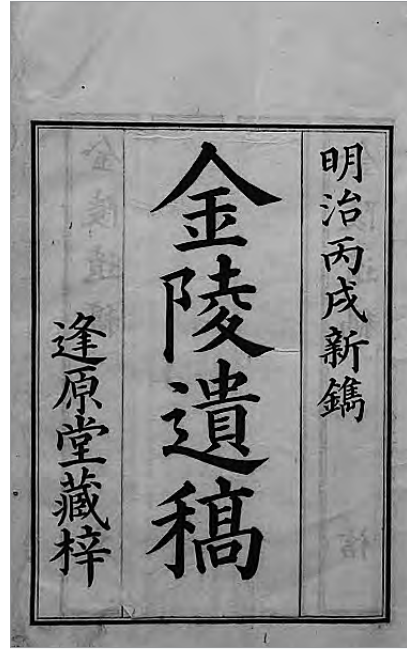 明治丙戌新鐫
金陵遺稿
逢原堂藏梓